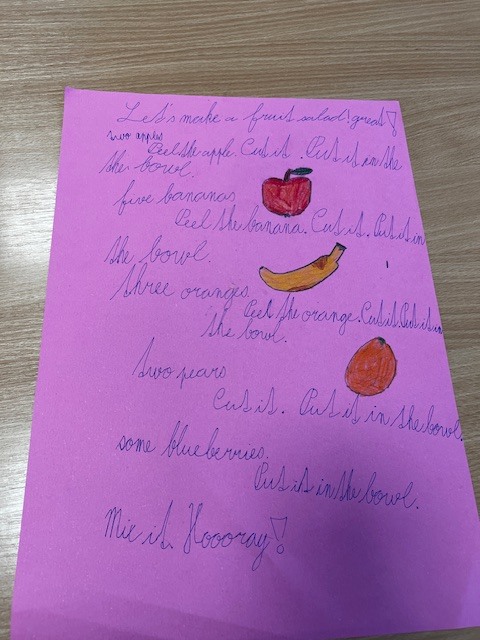 Let's make a fruit salad! great!
two apples
Peel the apple. Cut it. Put it in the
the bowl.
five bananas
Peel the banana. Cut it. Put it in
the bowl.
three oranges
Peel the orange. Cut it. Put it in
the bowl.
two pears
Cut it. Put it in the bowl.
some blueberries.
Put it in the bowl.
Mix it. Hoooray!